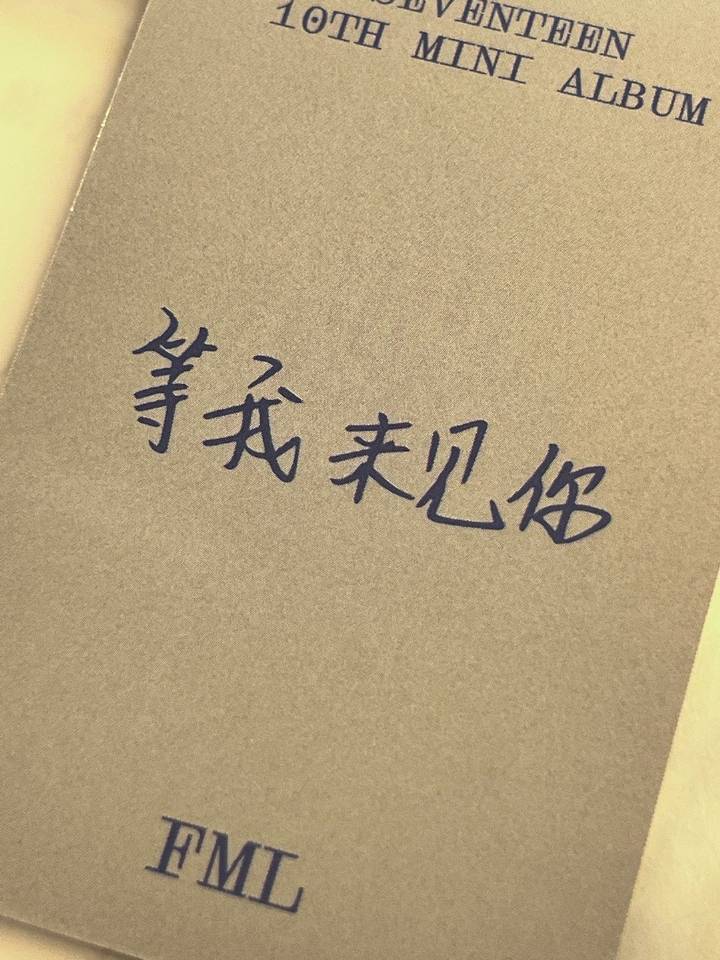 SEVENTEEN
10TH MINI ALBUM
等我来见你
FML